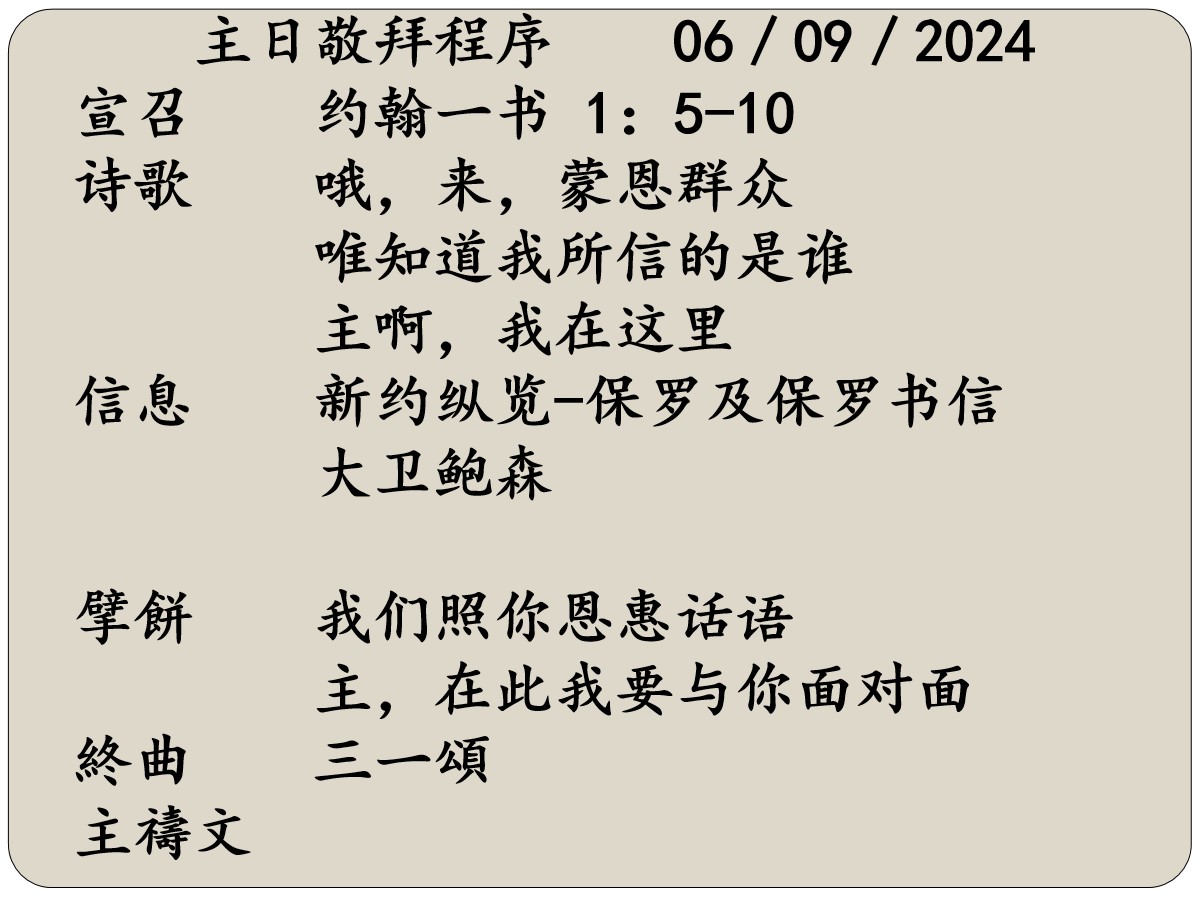 主日敬拜程序 06／09／2024
宣召 约翰一书 1：5-10
诗歌 哦，来，蒙恩群众
唯知道我所信的是谁
主啊，我在这里
信息 新约纵览-保罗及保罗书信
大卫鲍森
擘餅 我们照你恩惠话语
主，在此我要与你面对面
終曲 三一頌
主禱文